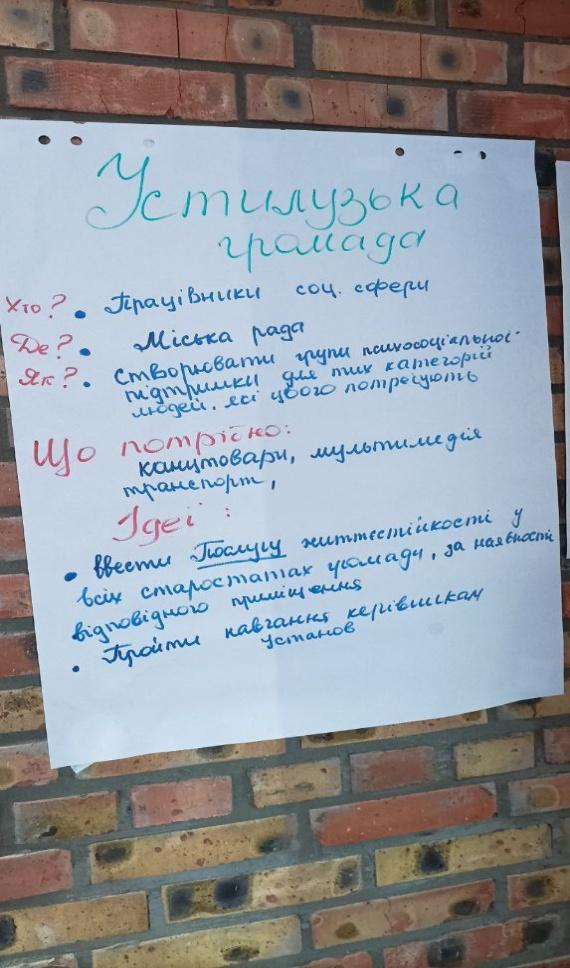 Устилузька
громада
Хто? • Працівники соц. сфери
Де? • Міська рада
Як? • Створювати групи психосоціальної
підтримки для тих категорій
людей, які цього потребують
Що потрібно:
канцтовари, мультимедія
транспорт,
Ідеї:
• Ввести Послугу життєстійкості у
всіх старостатах громади, за наявності
відповідного приміщення
• Пройти навчання керівникам
установ